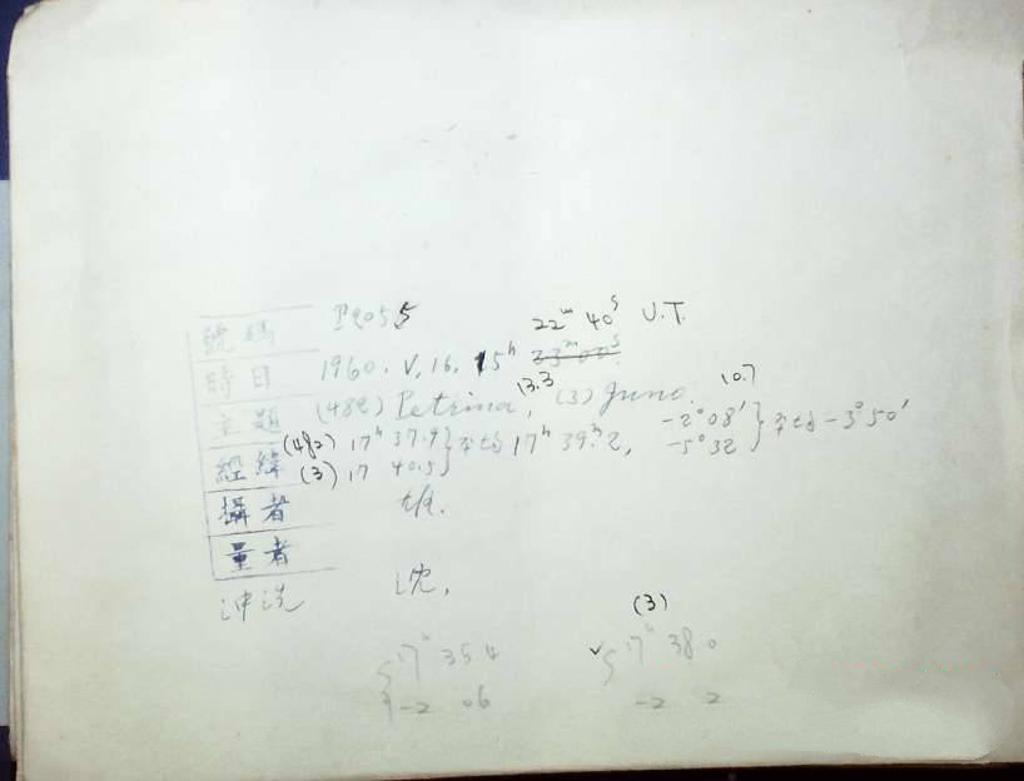 號碼 P2055
22ᵐ 40ˢ U.T.
時日 1960. V. 16. 15ʰ 33ᵐ 00ˢ
13.3 10.7
主題 (482) Petrina, (3) Juno.
經緯 (482) 17ʰ 37.9 } 平均 17ʰ 39.ʰ2, -2°08′ } 平均 -3°50′
(3) 17 40.5 -5°32
攝者
量者
沖洗 沈.
(3)
17ʰ 35 4 17ʰ 38 0
-2 06 -2 2